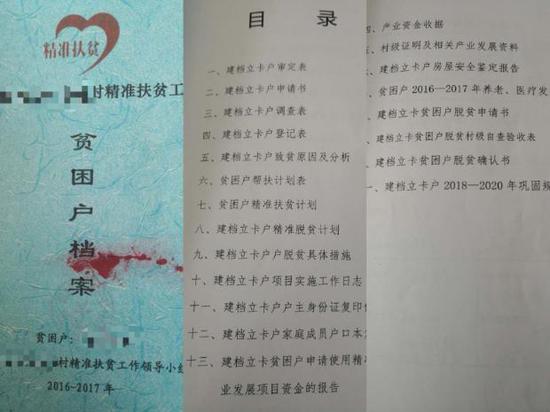 精准扶贫
村精准扶贫工
贫困户档案
贫困户：
村精准扶贫工作领导小组
2016-2017年
目 录
一、建档立卡户审定表
二、建档立卡户申请书
三、建档立卡户调查表
四、建档立卡户登记表
五、建档立卡户致贫原因及分析
六、贫困户帮扶计划表
七、贫困户精准扶贫计划
八、建档立卡户精准脱贫计划
九、建档立卡户户脱贫具体措施
十、建档立卡户项目实施工作日志
十一、建档立卡户户主身份证复印件
十二、建档立卡户家庭成员户口本
十三、建档立卡贫困户申请使用精
业发展项目资金的报告
四、产业资金收据
、村级证明及相关产业发展资料
建档立卡户房屋安全鉴定报告
贫困户2016—2017年养老、医疗发
建档立卡贫困户脱贫申请书
建档立卡贫困户脱贫村级自查验收表
建档立卡贫困户脱贫确认书
一、建档立卡户2018—2020年巩固规